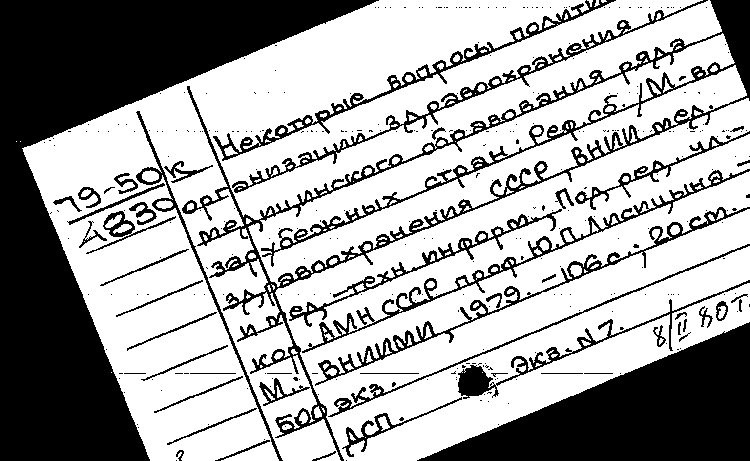 79-50к
4830
Некоторые вопросы полити
организации здравоохранения и
медицинского образования ряда
зарубежных стран: Реф. сб. / М-во
здравоохранения СССР, ВНИИ мед.
и мед.-техн. информ.; Под ред. чл.-
кор. АМН СССР проф. Ю.П. Лисицына. -
М.: ВНИИМИ, 1979. - 106 с.; 20 см. -
500 экз. Экз. N 7.
ДСП.
8/II 80 г.